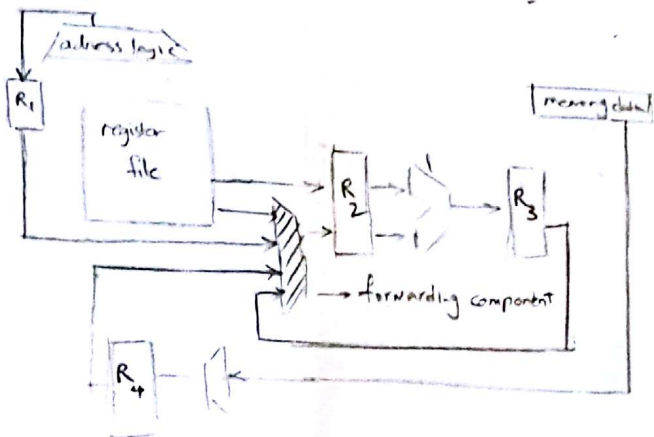 adress logic
R1
register
file
memory data
R
2
R3
forwarding component
R
4